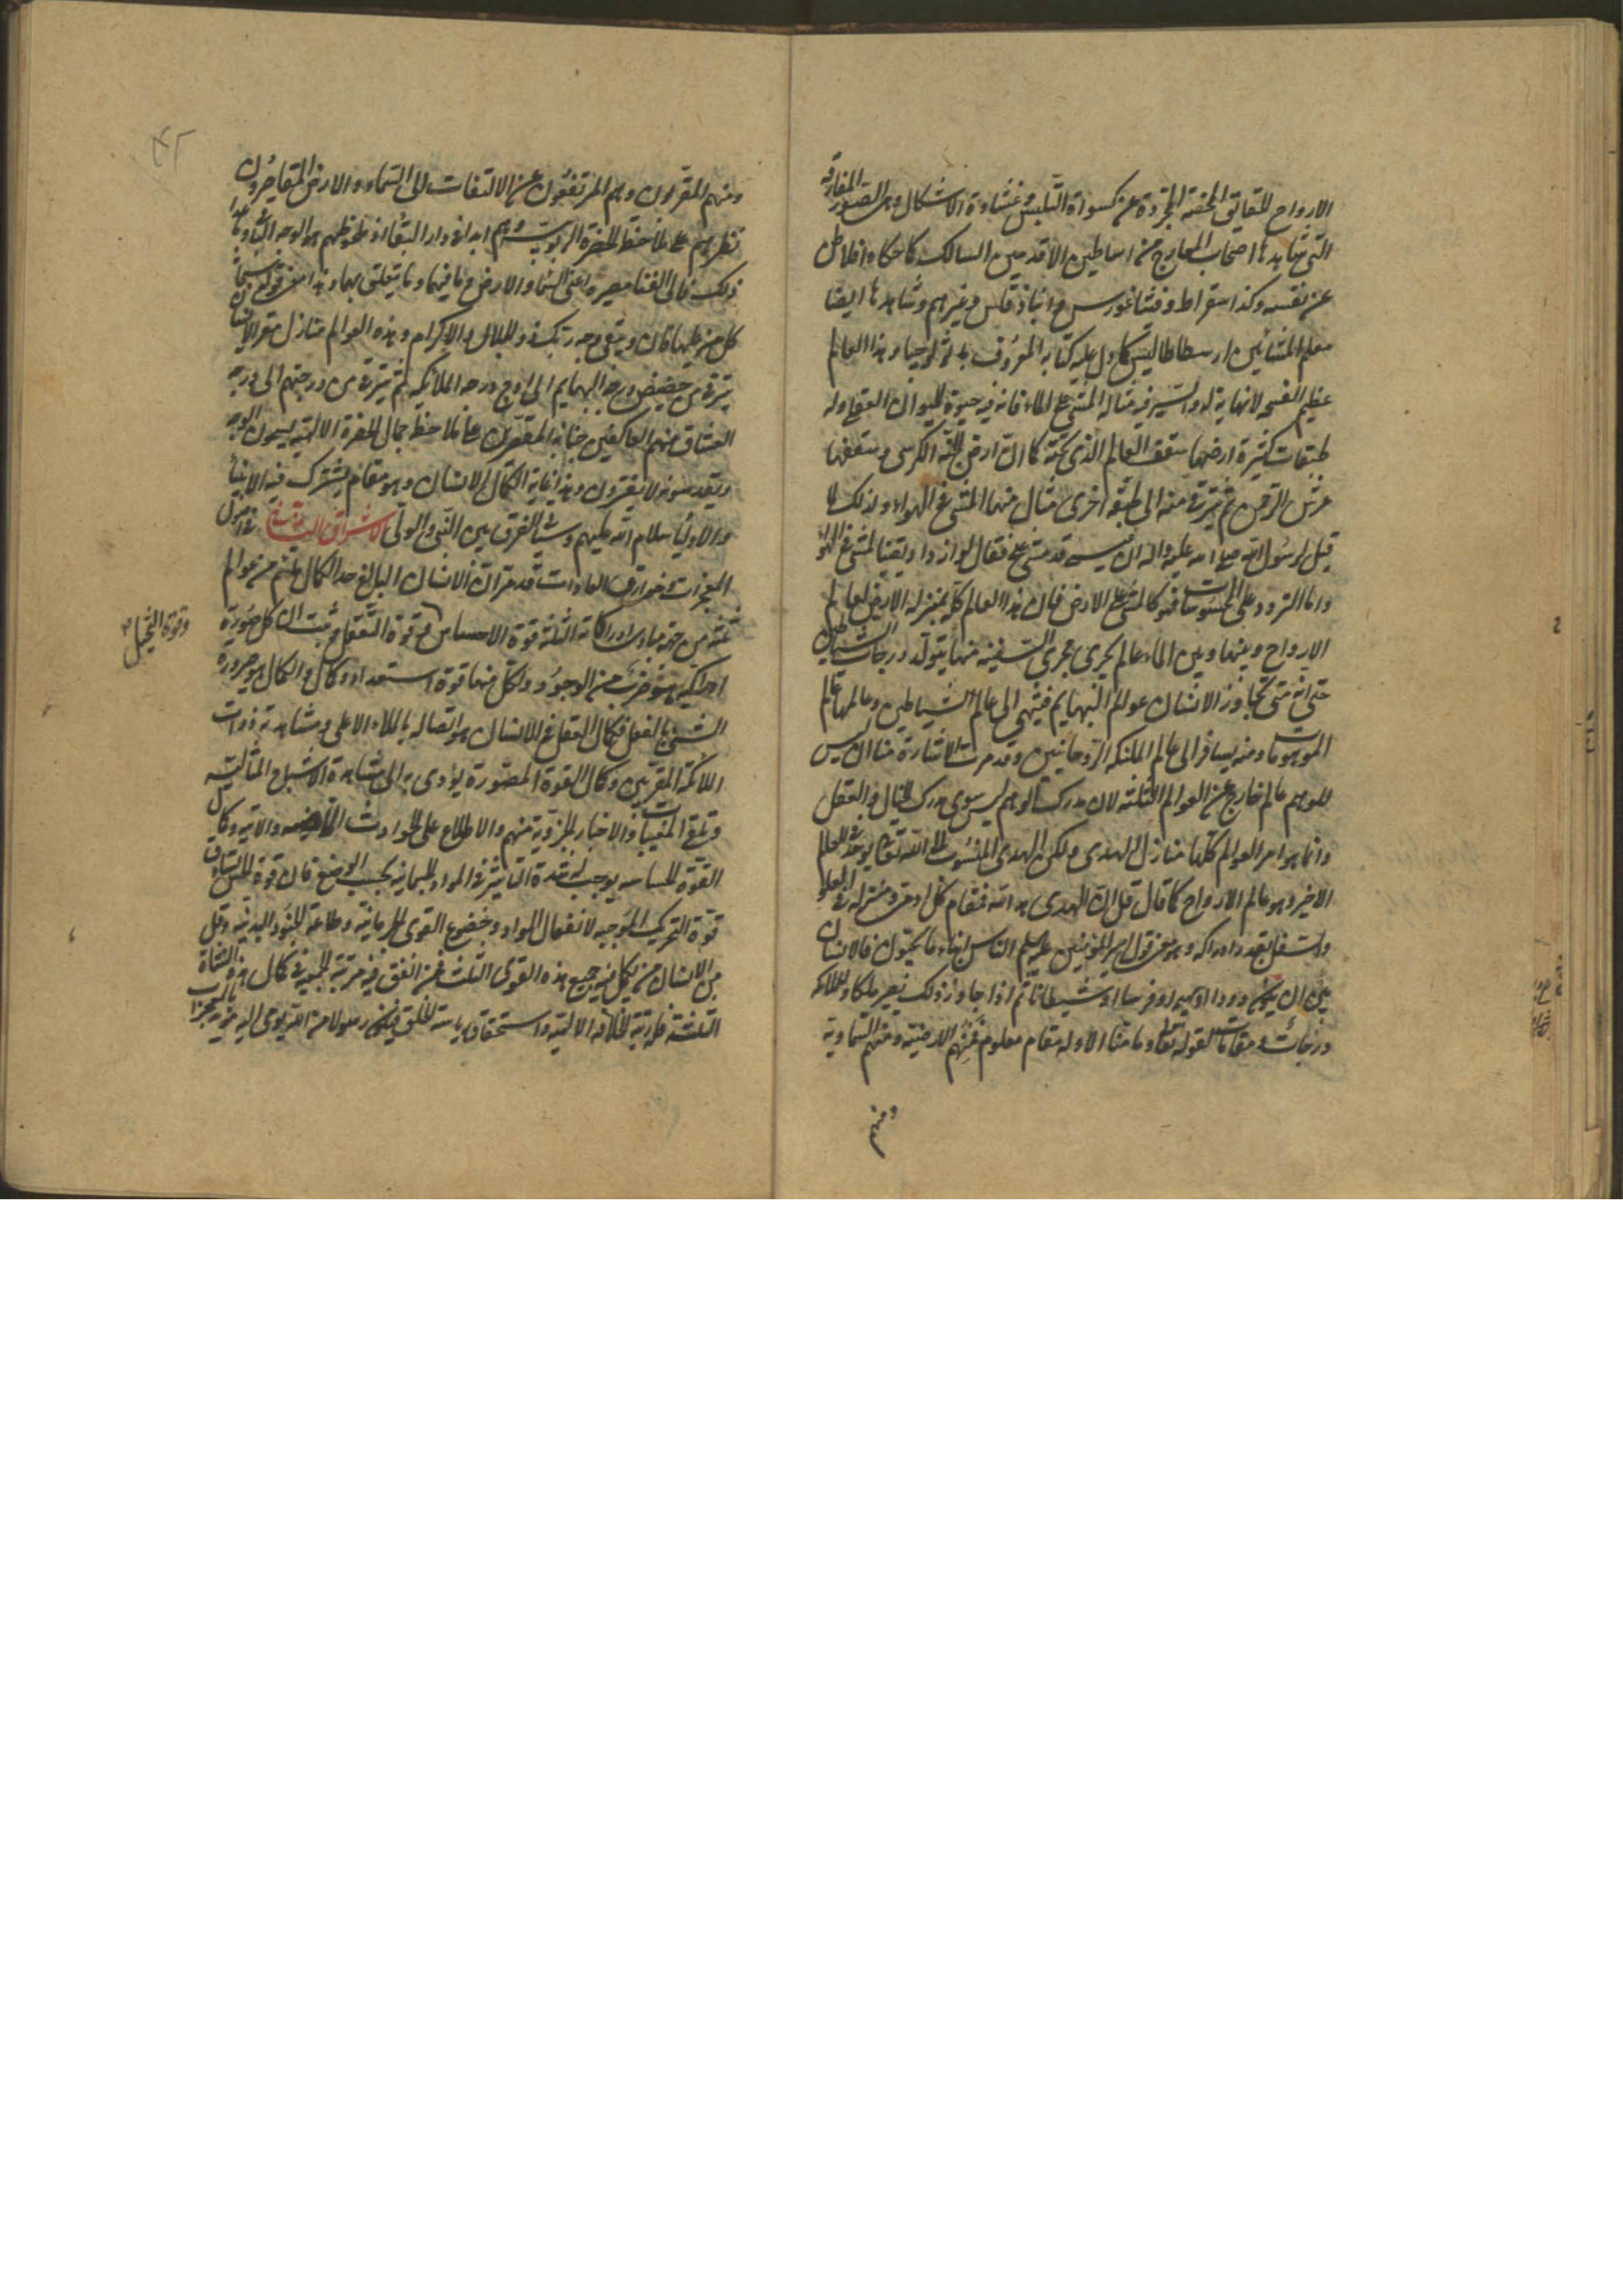 الارواح للحقائق المحضة المجردة عن كسوة التلبس وغشاوة الاشكال وهى الصور المفارقة
التى شاهدها اصحاب المعارج من اساطين الاقدمين السالك كما حكاه افلاطن
عن نفسه وكذا سقراط وفيثاغورس وانباذقلس وغيرهم وشاهدها ايضا
معلم المشائين ارسطاطاليس كما دل عليه كتابه المعروف باثولوجيا وهذا العالم
عظيم الفسحة لانهاية له والسير فيه مثاله المشى على الماء فانه فيه حيوة للحيوان العقلى وله
طبقات كثيرة ارضها سقف العالم الذى تحته كما ان ارض الجنة الكرسى وسقفها
عرش الرحمن ثم يترقى منه الى طبقة اخرى مثال منها المشى فى الهواء ولذلك لما
قيل لرسول الله صلى الله عليه واله ان عيسى قد مشى على فقال لو ازداد يقينا لمشى فى الهواء
واما التردد على المحسوسات فهو كالمشى على الارض فان هذا العالم كله بمنزلة الارض لعالم
الارواح وبينها وبين الماء عالم يجرى مجرى السفينة منها يتولد درجات الشياطين
حتى انه متى تجاوز الانسان عوالم البهايم فينتهى الى عالم الشياطين وعالمها عالم
الموهومات ومنه يسافر الى عالم الملئكة الروحانيين وقد مرت الاشارة منا ان ليس
للوهم عالم خارج عن العوالم الثلثة لان مدرك الوهم ليس سوى مدرك الخيال والعقل
وانما هو امر العوالم كلها منازل الهدى ولكن الهدى المنسوب الى الله تعالى يوجد فى العالم
الاخير وهو عالم الارواح كما قال قل ان الهدى هدى الله فمقام كل ادمى ومنزله فى العلو
والسفل بقدر ادراكه وهو معنى قول امير المؤمنين عليه السلم الناس ابناء ما يحسنون فالانسان
بين ان يكون دودا او بهيمة او فرسا او شيطانا ثم اذا جاوز ذلك يصير ملكا وللملائكة
درجات ومقامات لقوله تعالى وما منا الا وله مقام معلوم فمنهم الارضية ومنهم السماوية
ومنهم
ومنهم المقربون وهم المرتفعون عن الالتفات الى السماء والارض القاصرون
نظرهم على ملاحظة الحضرة الربوبية وهم ابدا فى دار البقاء اذ ملحوظهم هو الوجه الباقى وما عدا
ذلك فالى الفنا مصيره اعنى السماء والارض وما فيهما وما يتعلق بهما وهذا معنى قوله سبحانه
كل من عليها فان ويبقى وجه ربك ذو الجلال والاكرام وهذه العوالم منازل سفر الانسان
يترقى من حضيض درجة البهايم الى اوج درجة الملائكة ثم يترقى من درجتهم الى درجة
العشاق منهم العاكفين جنابه المقصرين على ملاحظة جمال الحضرة الالهية يسبحون الوجه
ويقدسونه لا يفترون وهذا غاية الكمال الانسان وهو مقام يشترك فيه الانبياء
والاولياء سلام الله عليهم وسيأتى الفرق بين النبى والولى الاشراق الثانى فى اصول
المعجزات وخوارق العادات قد مر ان الانسان البالغ حد الكمال ملتئم من عوالم
ثلثة من جهة مبادى ادراكاته الثلثة قوة الاحساس وقوة التعقل وثبت ان كل صورة
وقوة التخيل
ادراكية هو ضرب من الوجود ولكل منها قوة استعداد وكمال والكمال هو صيرورة
الشئ بالفعل فكمال التعقل فى الانسان هو اتصاله بالملاء الاعلى ومشاهدته ذوات
الملائكة المقربين وكمال القوة المصورة يؤدى به الى مشاهدة الاشباح المثالية
وتلقى المغيبات والاخبار الجزوية منهم والاطلاع على الحوادث الماضيه والاتية وكمال
القوة الحساسه يوجب له شدة التاثير فى المواد الجسمانية بحسب الوضع فان قوة الحس تساوق
قوة التحريك الموجبه لانفعال المواد وخضوع القوى الجرمانية وطاعة الجنود البدنية وقل
من الانسان من يكمل فيه جميع هذه القوى الثلث فمن اتفق فيه مرتبة الجمعية فى كمال هذه النشاة
الثلثة فله رتبة الخلافة الالهية واستحقاق رياسة الخلق فيكون رسولا من الله يوحى اليه مؤيد بالمعجزات